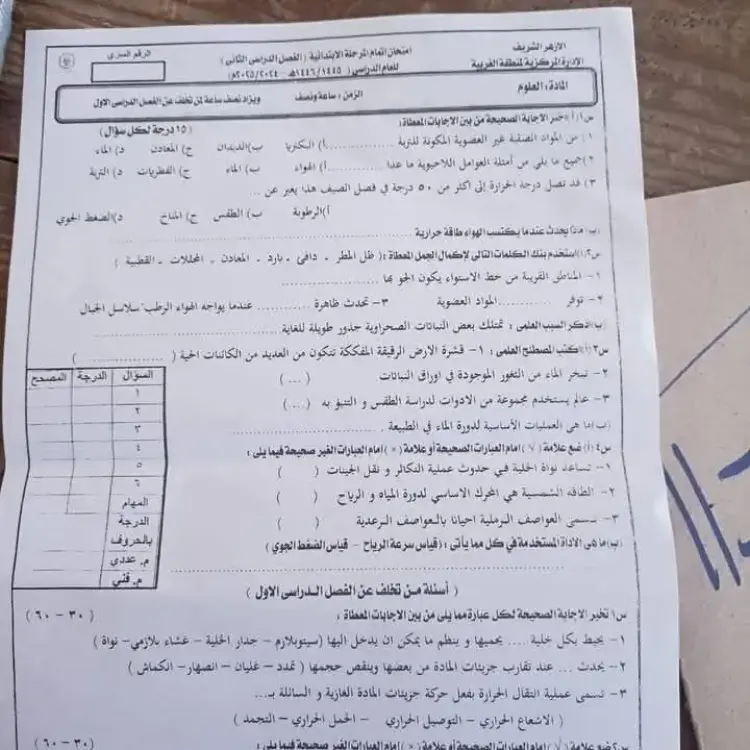 الازهر الشريف
الإدارة المركزية لمنطقة الغربية
امتحان إتمام المرحلة الابتدائية ( الفصل الدراسى الثانى )
للعام الدراسى ( ١٤٤٦/١٤٤٥هـ - ٢٠٢٥/٢٠٢٤م)
الرقم السرى
المادة: العلوم الزمن : ساعة ونصف ويزاد نصف ساعة لمن تخلف عن الفصل الدراسى الاول
س١: أ )اختر الاجابة الصحيحة من بين الاجابات المعطاة: (١٥ درجة لكل سؤال)
١) من المواد الصلبة غير العضوية المكونة للتربة .......... أ) البكتريا ب)الديدان ج) المعادن د) الماء
٢)جميع ما يلي من أمثلة العوامل اللاحيوية ما عدا .......... أ) الهواء ب) الماء ج) الفطريات د) التربة
٣) قد تصل درجة الحرارة إلى اكثر من ٥٠ درجة في فصل الصيف هذا يعبر عن ...
أ)الرطوبة ب) الطقس ج) المناخ د)الضغط الجوي
(ب) ماذا يحدث عندما يكتسب الهواء طاقة حرارية ..........
س٢: أ)استخدم بنك الكلمات التالى لإكمال الجمل المعطاة :( ظل المطر - دافئ - بارد - المعادن - المحللات - القطبية )
١- المناطق القريبة من خط الاستواء يكون الجو بها ..........
٢- توفر .......... المواد العضوية ٣- تحدث ظاهرة .......... عندما يواجه الهواء الرطب سلاسل الجبال
(ب)اذكر السبب العلمى : تمتلك بعض النباتات الصحراوية جذور طويلة للغاية ..........
س٣: أ)أكتب المصطلح العلمى : ١- قشرة الارض الرقيقة المفككة تتكون من العديد من الكائنات الحية ( .......... )
٢- تبخر الماء من الثغور الموجودة في اوراق النباتات ( ... )
٣- عالم يستخدم مجموعة من الادوات لدراسة الطقس و التنبؤ به (....)
(ب)ما هي العمليات الأساسية لدورة الماء في الطبيعة ..........
س٤: أ) ضع علامة ( √ ) امام العبارات الصحيحة أو علامة ( × ) امام العبارات الغير صحيحة فيما يلى :
١- تساعد نواة الخلية في حدوث عملية التكاثر و نقل الجينات ( )
٢- الطاقة الشمسية هي المحرك الاساسي لدورة المياه و الرياح ( )
٣- تسمى العواصف الرملية احيانا بالعواصف الرعدية ( )
(ب)ما هى الاداة المستخدمة في كل مما يأتى : (قياس سرعة الرياح - قياس الضغط الجوي )
السؤال الدرجة المصحح
١
٢
٣
٤
٥
٦
المهام
الدرجة
بالحروف
م. عددي
م. فني
( أسئلة من تخلف عن الفصل الدراسى الاول )
س١ تخير الاجابة الصحيحة لكل عبارة مما يلى من بين الاجابات المعطاة : ( ٣٠ - ٦٠ )
١- يحيط بكل خلية .... يحميها و ينظم ما يمكن ان يدخل اليها (سيتوبلازم - جدار الخلية - غشاء بلازمي- نواة )
٢- يحدث ... عند تقارب جزيئات المادة من بعضها وينقص حجمها ( تمدد - غليان - انصهار - انكماش )
٣- تسمى عملية انتقال الحرارة بفعل حركة جزيئات المادة الغازية و السائلة بـ...
( الاشعاع الحراري - التوصيل الحراري - الحمل الحراري - التجمد )
س٢ ضع علامة ( √ ) امام العبارات الصحيحة أو علامة ( × ) امام العبارات الغير صحيحة فيما يلى : ( ٣٠ - ٦٠ )